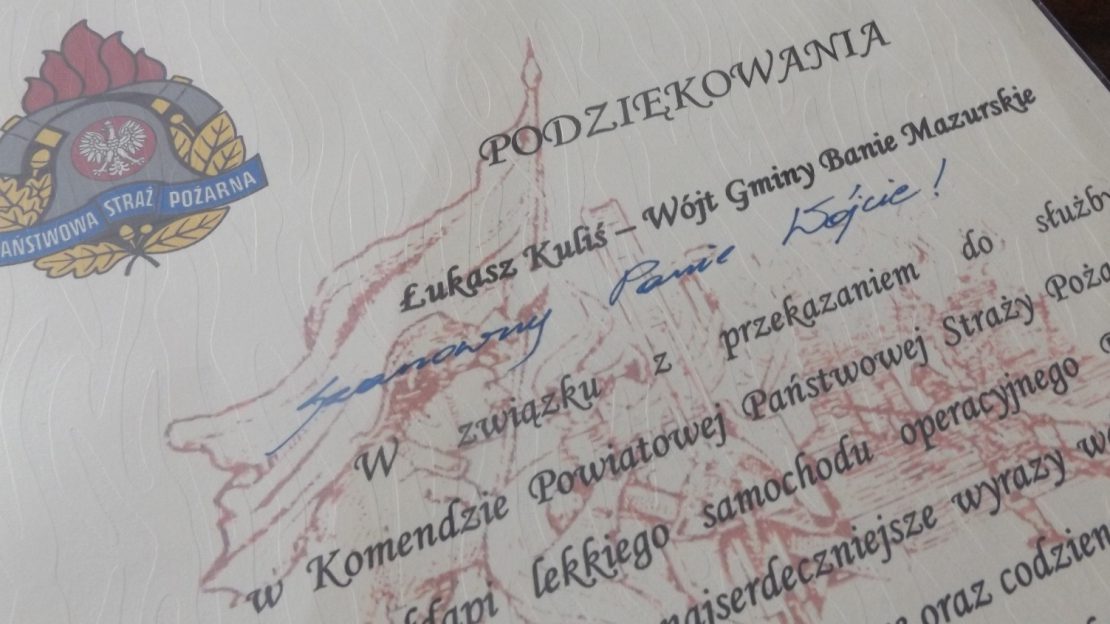 PAŃSTWOWA STRAŻ POŻARNA
PODZIĘKOWANIA
Łukasz Kuliś – Wójt Gminy Banie Mazurskie
Szanowny Panie Wójcie!
W związku z przekazaniem do służby
w Komendzie Powiatowej Państwowej Straży Poża
łdapi lekkiego samochodu operacyjnego
najserdeczniejsze wyrazy
oraz codzien